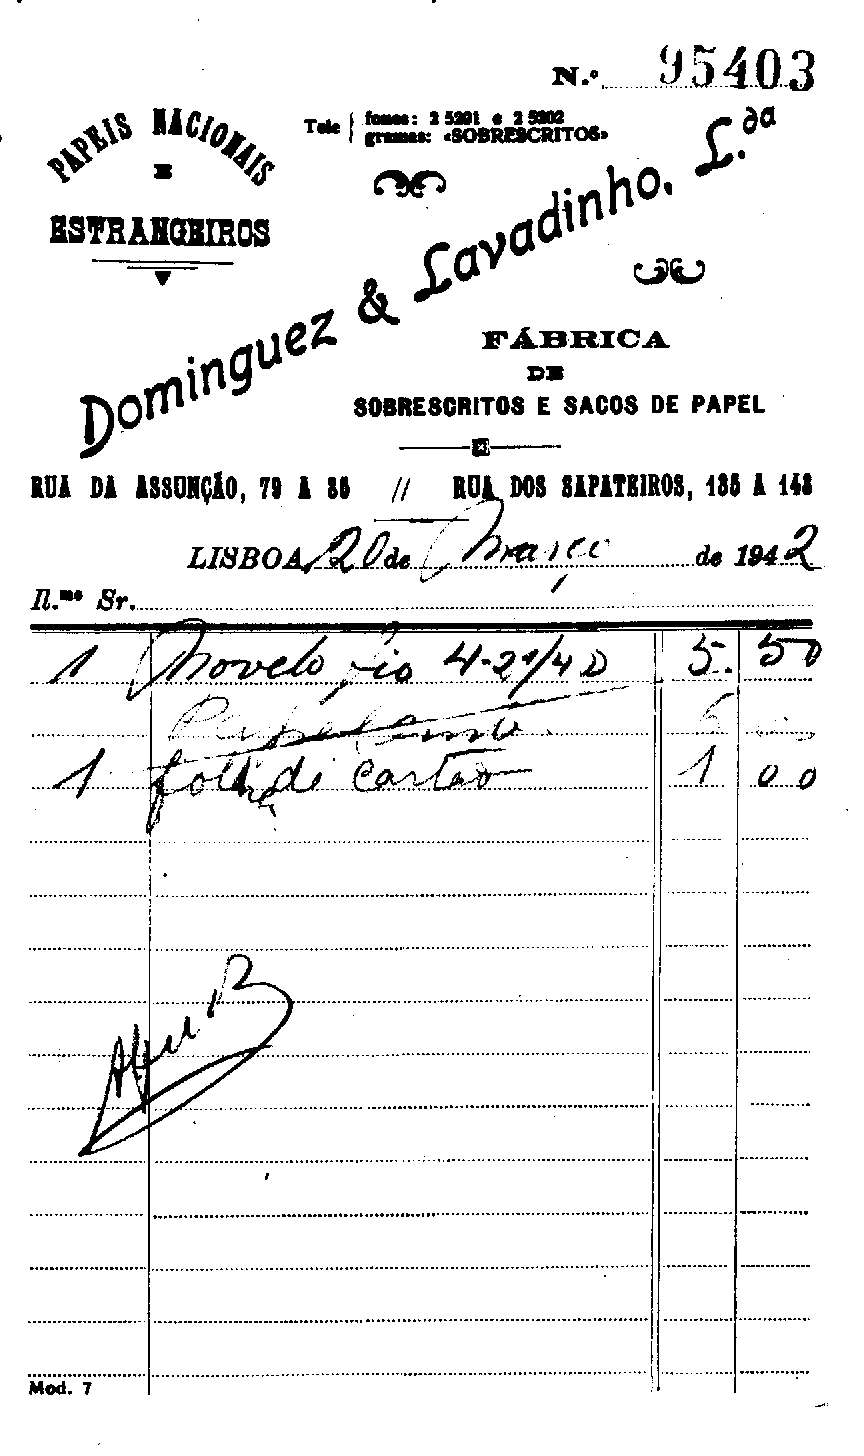 N.º 95403
PAPEIS NACIONAIS
E
ESTRANGEIROS
Tele fones: 2 5201 e 2 5202
gramas: «SOBRESCRITOS»
Dominguez & Lavadinho, L.da
FÁBRICA
DE
SOBRESCRITOS E SACOS DE PAPEL
RUA DA ASSUNÇÃO, 79 A 85 // RUA DOS SAPATEIROS, 135 A 143
LISBOA, 20 de Março de 1942
Il.mo Sr.
1 Novelo fio 5. 50
1 folha de cartão 1 00
Mod. 7